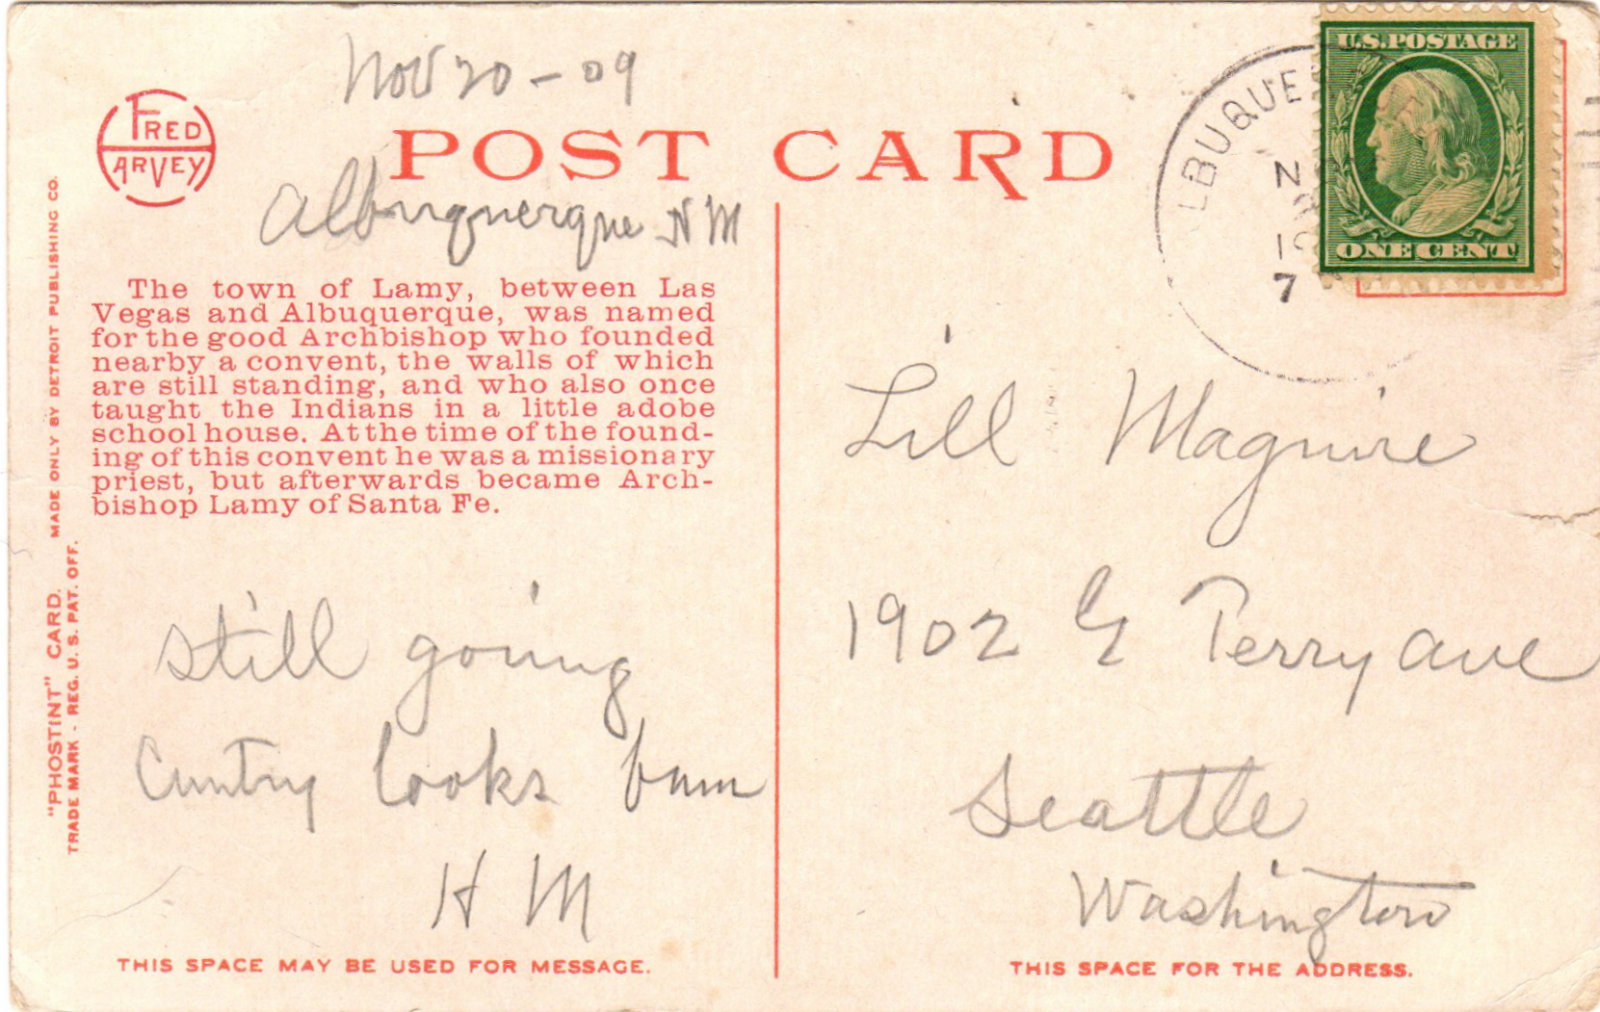 Nov 20-09
FRED
HARVEY
POST CARD
Albuquerque N M
The town of Lamy, between Las
Vegas and Albuquerque, was named
for the good Archbishop who founded
nearby a convent, the walls of which
are still standing, and who also once
taught the Indians in a little adobe
school house. At the time of the found-
ing of this convent he was a missionary
priest, but afterwards became Arch-
bishop Lamy of Santa Fe.
still going
Cuntry looks bum
H M
THIS SPACE MAY BE USED FOR MESSAGE.
"PHOSTINT" CARD. MADE ONLY BY DETROIT PUBLISHING CO.
TRADE MARK - REG. U. S. PAT. OFF.
U.S. POSTAGE
ONE CENT
LBUQUE
N
7
Lill Maguire
1902 E Terry ave
Seattle
Washington
THIS SPACE FOR THE ADDRESS.